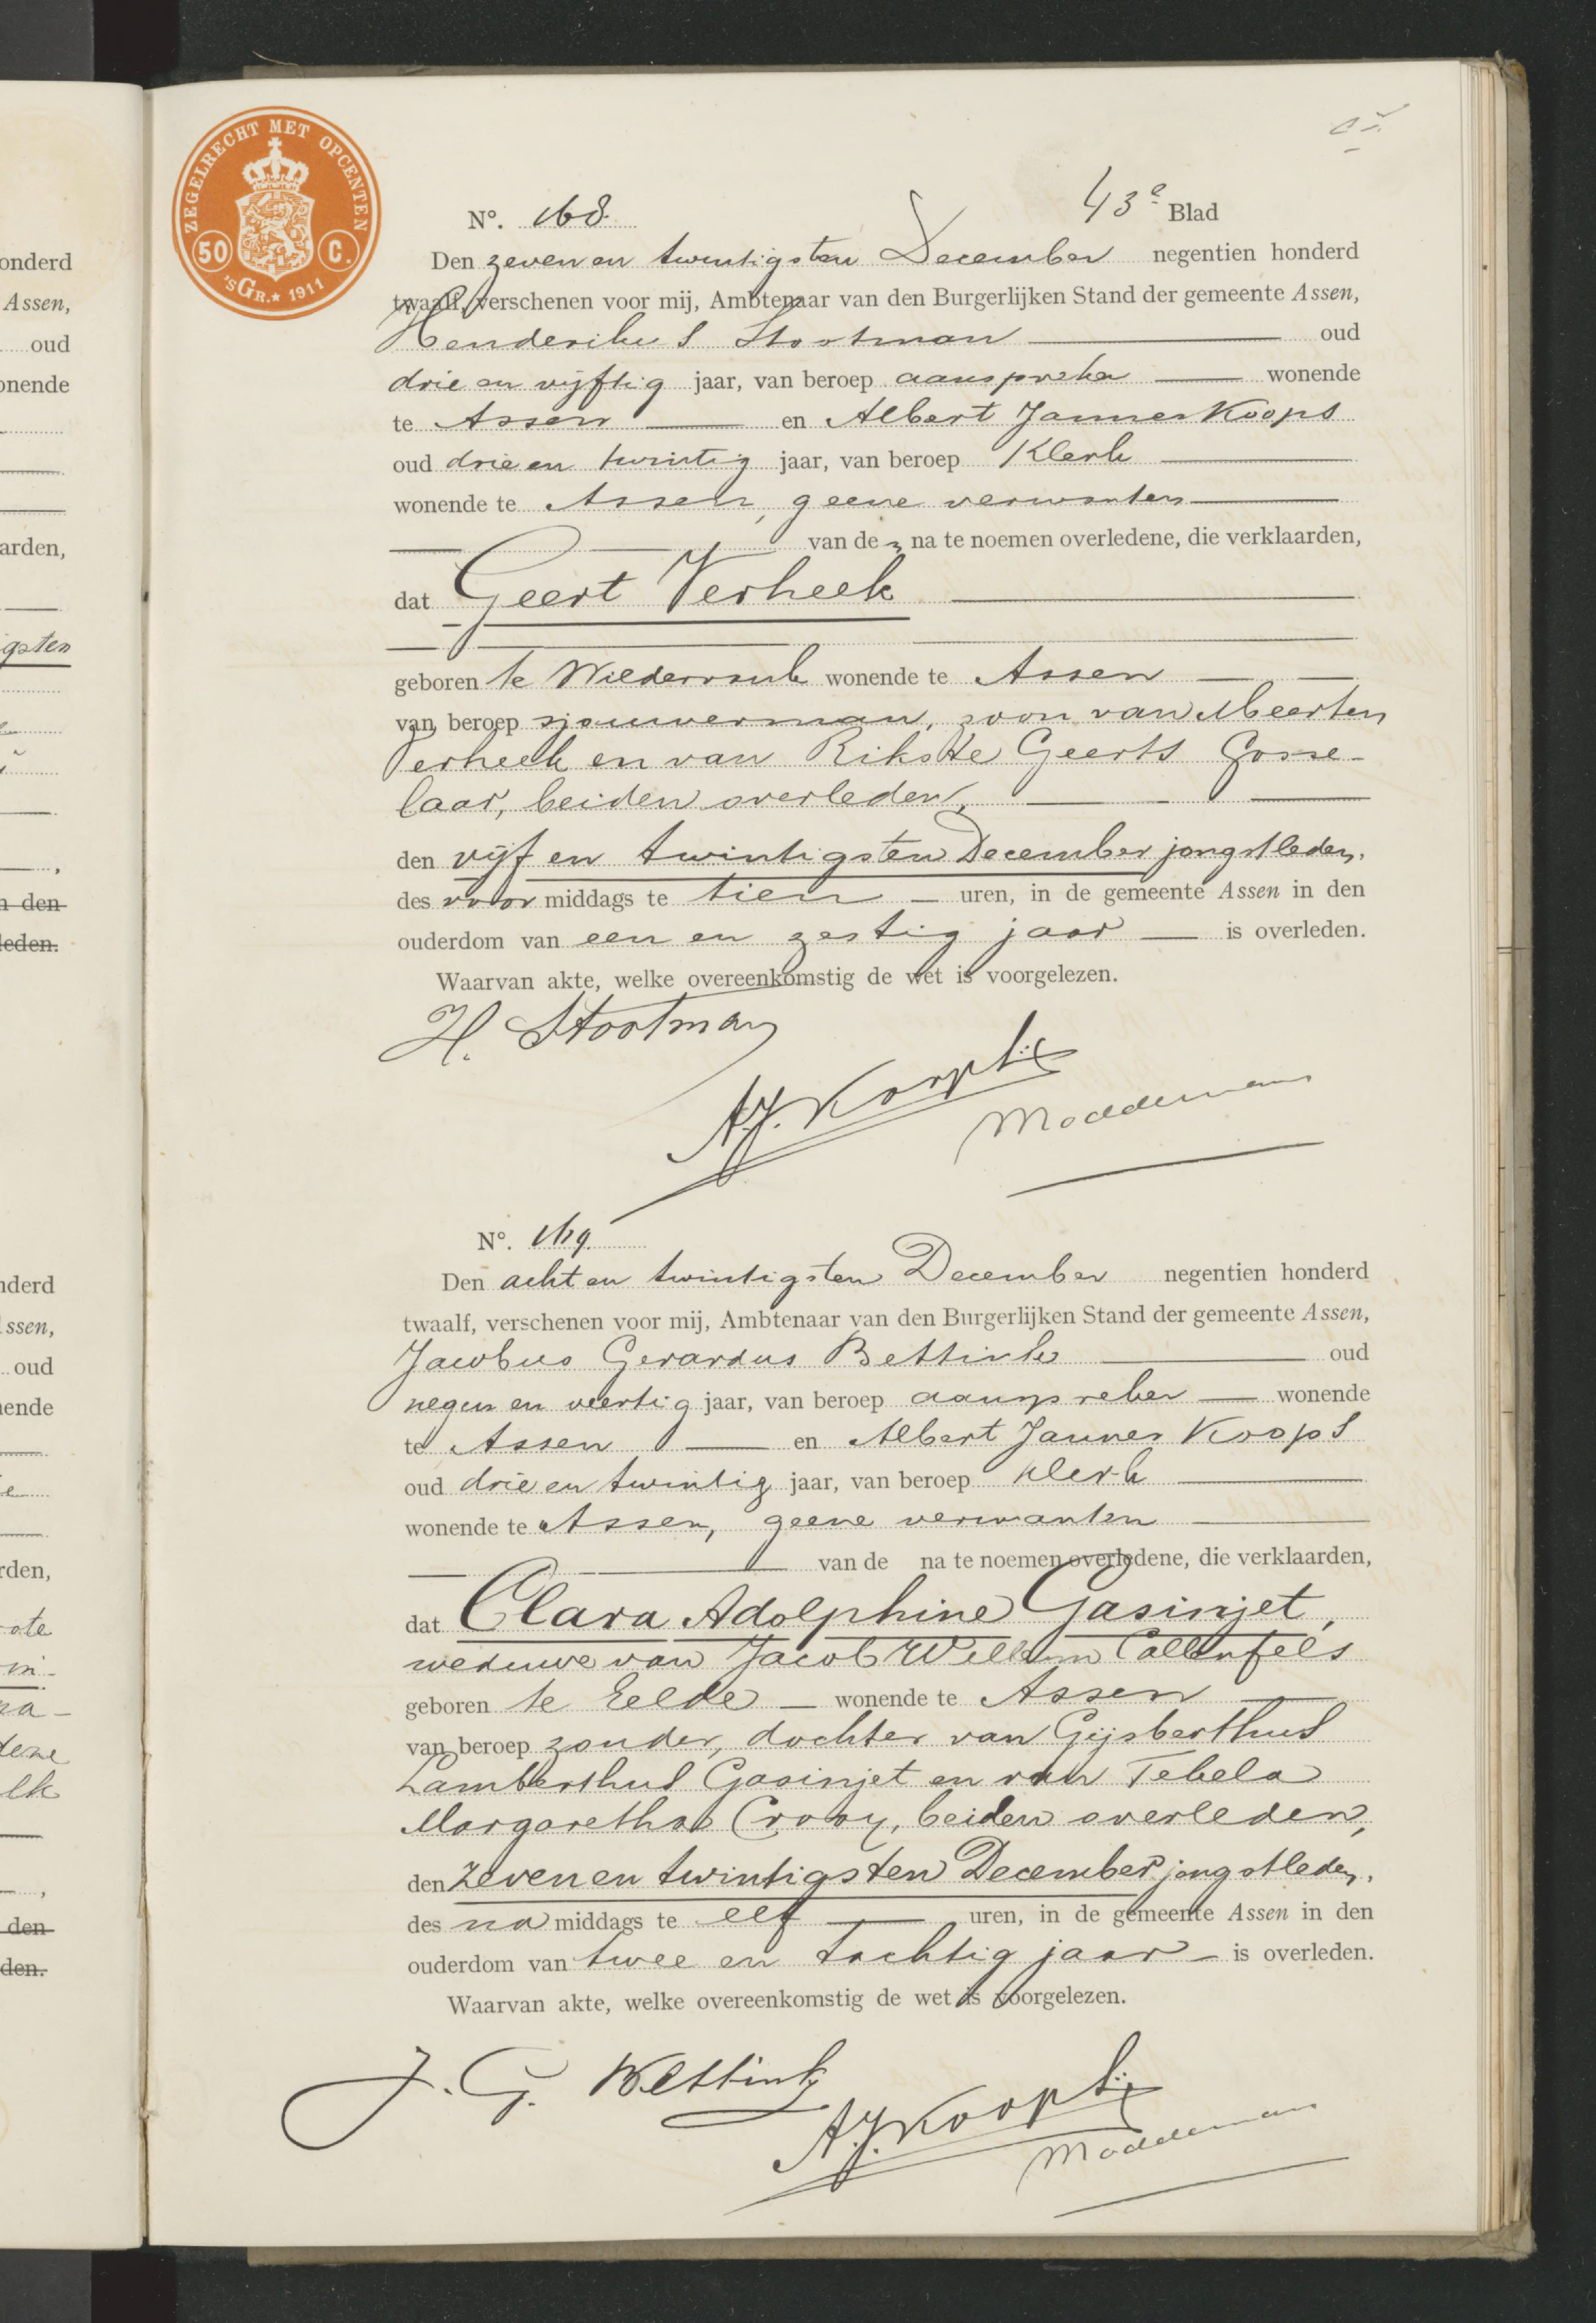 ZEGELRECHT MET OPCENTEN
50 C.
'SGR.* 1911
43e Blad
No. 168.
Den zeven en twintigsten December negentien honderd
twaalf, verschenen voor mij, Ambtenaar van den Burgerlijken Stand der gemeente Assen,
Henderikus Stootman oud
drie en vijftig jaar, van beroep aanspreker wonende
te Assen en Albert Jannes Koops
oud drie en twintig jaar, van beroep Klerk
wonende te Assen, geene verwanten
van de na te noemen overledene, die verklaarden,
dat Geert Verheek
geboren te Wildervank wonende te Assen
van beroep sjouwerman, zoon van Meerten
Verheek en van Rikste Geerts Gosse-
laar, beiden overleden,
den vijf en twintigsten December jongstleden.
des voor middags te tien uren, in de gemeente Assen in den
ouderdom van een en zestig jaar is overleden.
Waarvan akte, welke overeenkomstig de wet is voorgelezen.
H. Stootman
A.J. Koops
Moddermans
No. 169.
Den acht en twintigsten December negentien honderd
twaalf, verschenen voor mij, Ambtenaar van den Burgerlijken Stand der gemeente Assen,
Jacobus Gerardus Bettink oud
negen en veertig jaar, van beroep aanspreker wonende
te Assen en Albert Jannes Koops
oud drie en twintig jaar, van beroep klerk
wonende te Assen, geene verwanten
van de na te noemen overledene, die verklaarden,
dat Clara Adolphine Gasinjet,
weduwe van Jacob Willem Callenfels
geboren te Eelde wonende te Assen
van beroep zonder, dochter van Gijsberthus
Lamberthus Gasinjet en van Tebela
Margaretha Crooy, beiden overleden,
den zeven en twintigsten December jongstleden.
des na middags te elf uren, in de gemeente Assen in den
ouderdom van twee en tachtig jaar is overleden.
Waarvan akte, welke overeenkomstig de wet is voorgelezen.
J. G. Bettink
A.J. Koops
Moddermans